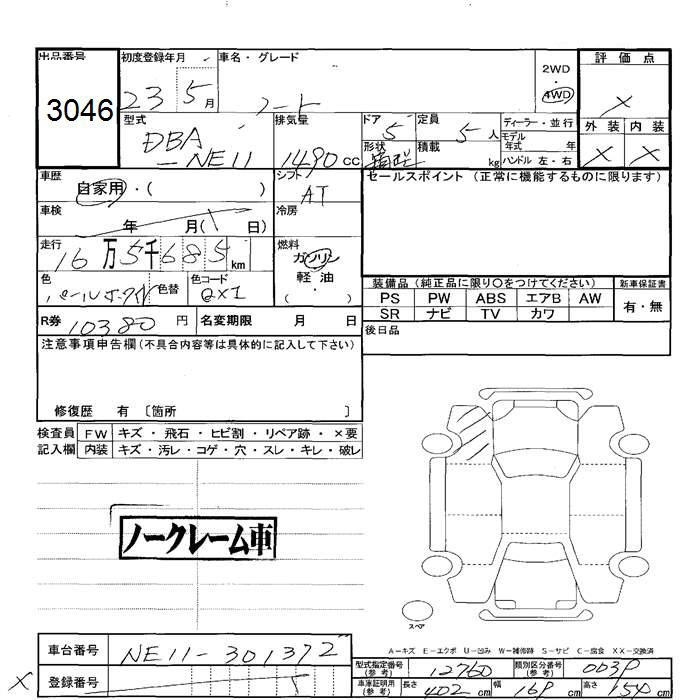 出品番号
3046
初度登録年月
23 5月
車名・グレード
ノート
2WD
・
4WD
評価点
×
外装 内装
× ×
型式
DBA
-NE11
排気量
1490 cc
ドア
5
定員
5人
形状
積載
kg
ディーラー・並行
モデル
年式 年
ハンドル 左・右
車歴
自家用・( )
シフト
AT
セールスポイント (正常に機能するものに限ります)
車検
年 月( 日)
冷房
走行
16万5千685km
燃料
ガソリン
軽油
・
色
色替
色コード
QX1
装備品 (純正品に限り〇をつけてください)
新車保証書
PS PW ABS エアB AW
SR ナビ TV カワ
有・無
R券
10380円
名変期限 月 日
後日品
注意事項申告欄(不具合内容等は具体的に記入して下さい)
修復歴 有 〔箇所 〕
検査員 FW キズ・飛石・ヒビ割・リペア跡・×要
記入欄 内装 キズ・汚レ・コゲ・穴・スレ・キレ・破レ
ノークレーム車
スペア
A-キズ E-エクボ U-凹み W-補修跡 S-サビ C-腐食 XX-交換済
車台番号
NE11-301372
×
登録番号
型式指定番号
(参考)
12760
類別区分番号
(参考)
車庫証明用
(参考)
長さ
402cm
幅
169cm
高さ
154cm